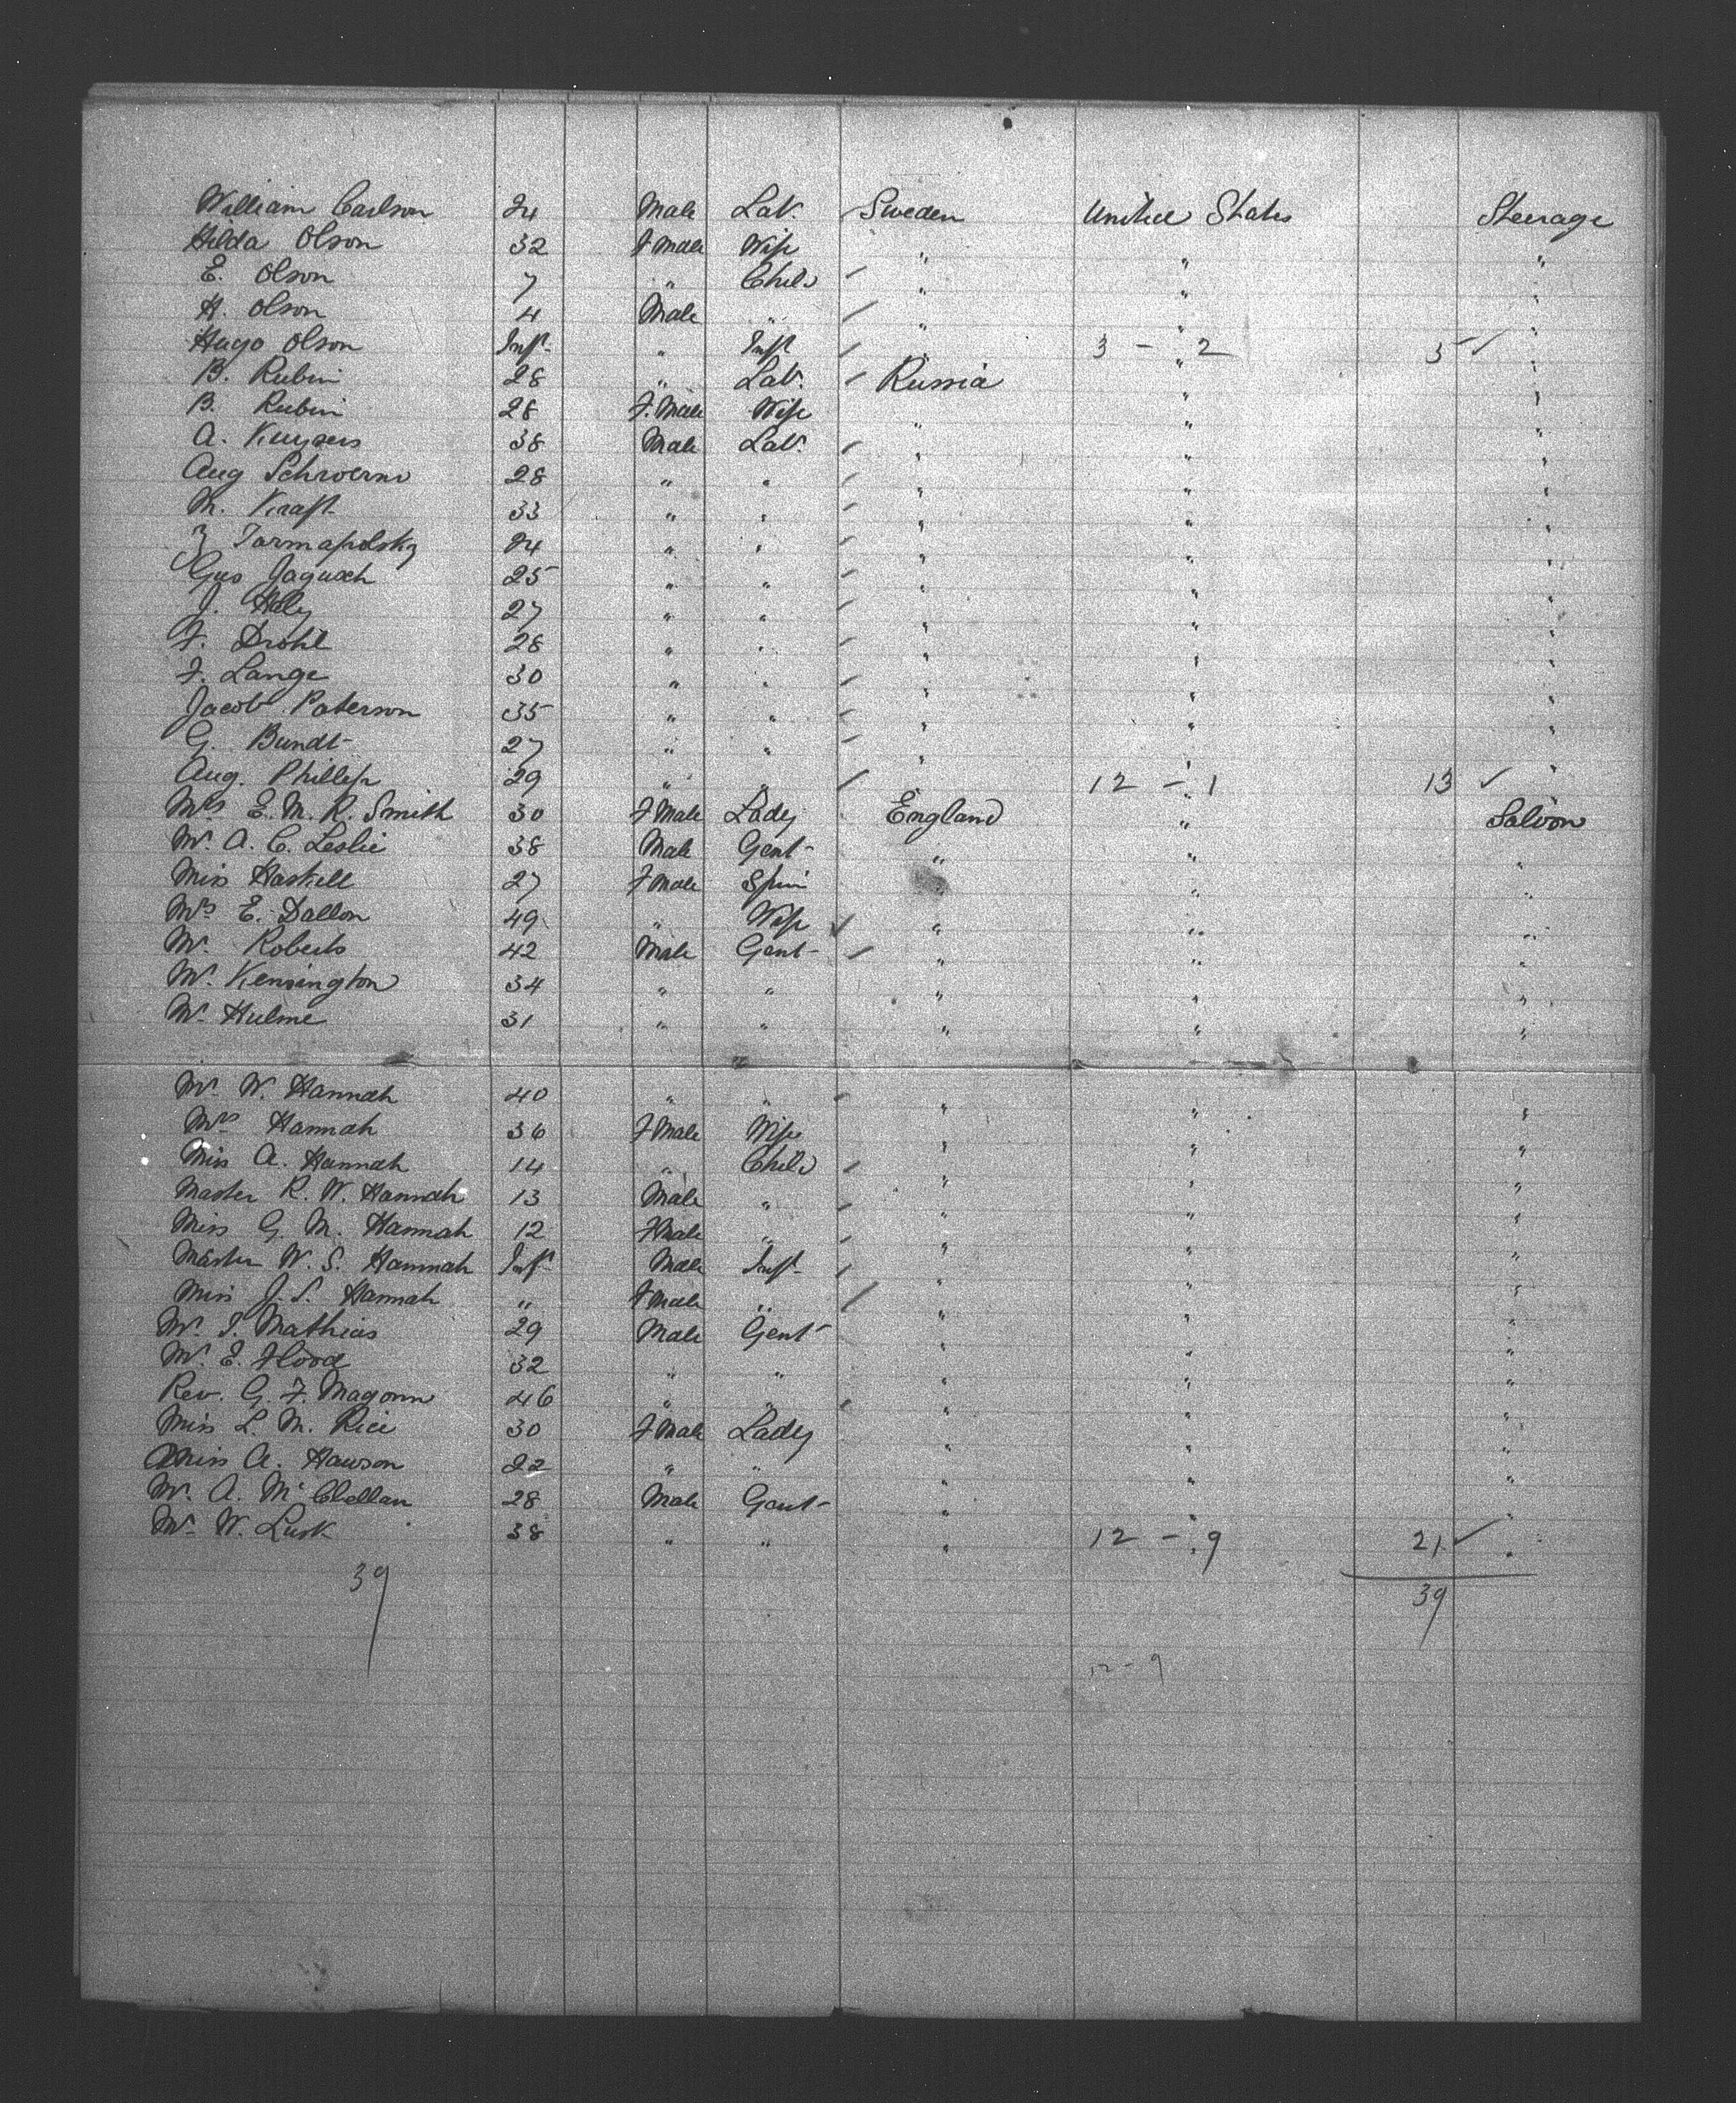 William Carlson 24 Male Lab. Sweden United States Steerage
Hilda Olson 32 F Male Wife " " "
E. Olson 7 " Child " " "
H. Olson 4 Male " " " "
Hugo Olson Inft " Inft " 3 - " 2 5 ✓ "
B. Rubin 28 " Lab. Russia " "
B. Rubin 28 F. Male Wife " " "
A. Kuypers 38 Male Lab. " " "
Aug 28 " " " " "
M. Kraft 33 " " " " "
24 " " " " "
Gus 25 " " " " "
J. Holy 27 " " " " "
F. Drohl 28 " " " " "
F. Lange 30 " " " " "
Jacob Paterson 35 " " " " "
G. Bundt 27 " " " " "
Aug. Phillip 29 " " " 12 - " 1 13 ✓ "
Mrs E. M. R. Smith 30 F Male Lady England " Saloon
Mr A. C. Leslie 38 Male Gent " " "
Miss Haskell 27 F Male Spin " " "
Mrs E. Dallon 49 " Wife " " "
Mr Roberts 42 Male Gent " " "
Mr Kensington 34 " " " " "
Mr Hulme 31 " " " " "
Mr W. Hannah 40 " " " " "
Mrs Hannah 36 F Male Wife " " "
Miss A. Hannah 14 " Child " " "
Master R. W. Hannah 13 Male " " " "
Miss G. M. Hannah 12 F Male " " " "
Master W. S. Hannah Inft Male Inft " " "
Miss J. S. Hannah " F Male " " " "
Mr J. Mathias 29 Male Gent " " "
Mr E. Flood 32 " " " " "
Rev. G. F. Magoun 46 " " " " "
Miss L. M. Rice 30 F Male Lady " " "
Miss A. Hawson 22 " " " " "
Mr A. McClellan 28 Male Gent " " "
Mr W. Lusk 38 " " " 12 - " 9 21 ✓ "
39 39
12 - 9